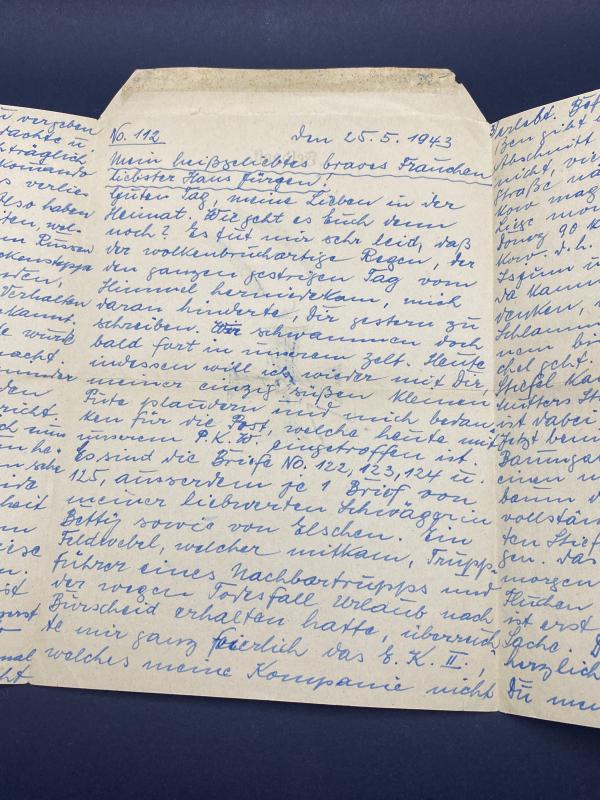 u vergeben
dachte u
hträglich
s verlie-
Also haben
iten, wel-
m Russen
nden,
Verhalten
kannt.
acht.
den
richt
ch uns
n sehe
heit
iese
n.
ist
No. 112
Den 25.5.1943
Mein heißgeliebtes braves Frauchen
liebster Hans Jürgen!
Guten Tag, meine Lieben in der
Heimat. Wie geht es Euch denn
noch? Es tut mir sehr leid, daß
der wolkenbruchartige Regen, der
den ganzen gestrigen Tag vom
Himmel herniederkam, mich
daran hinderte, Dir gestern zu
schreiben. Wir schwammen doch
bald fort in unserem Zelt. Heute
indessen will ich wieder mit Dir,
meiner einzig süßen kleinen
Pute plaudern und mich bedan
ken für die Post, welche heute mit
unserem P.K.W. eingetroffen ist
Es sind die Briefe No. 122, 123, 124 u.
125, ausserdem je 1 Brief von
meiner liebwerten Schwägerin
Betty sowie von Elschen. Ein
Feldwebel, welcher mitkam, Trupp-
führer eines Nachbartrupps und
der wegen Todesfall Urlaub nach
Burscheid erhalten hatte, überreich
te mir ganz feierlich das E.K. II.,
welches meine Kompanie nicht
3) erlebt. Bef
ßen gibt e
Abschnitt
nicht, vie
straße nä
kow mag
liege mor
Donez 90 k
kow. d.h.
Isjum u
Da kann
denken,
Schlamm
nem bi
chel geht.
Stiefel kam
Mutters St
ist dabei
Jetzt beni
Baumgar
einen n
Denn d
vollstän
ten Stief
gen. Das
morgen
Flüchen
ist erst
Sache. D
herzlich
Du me